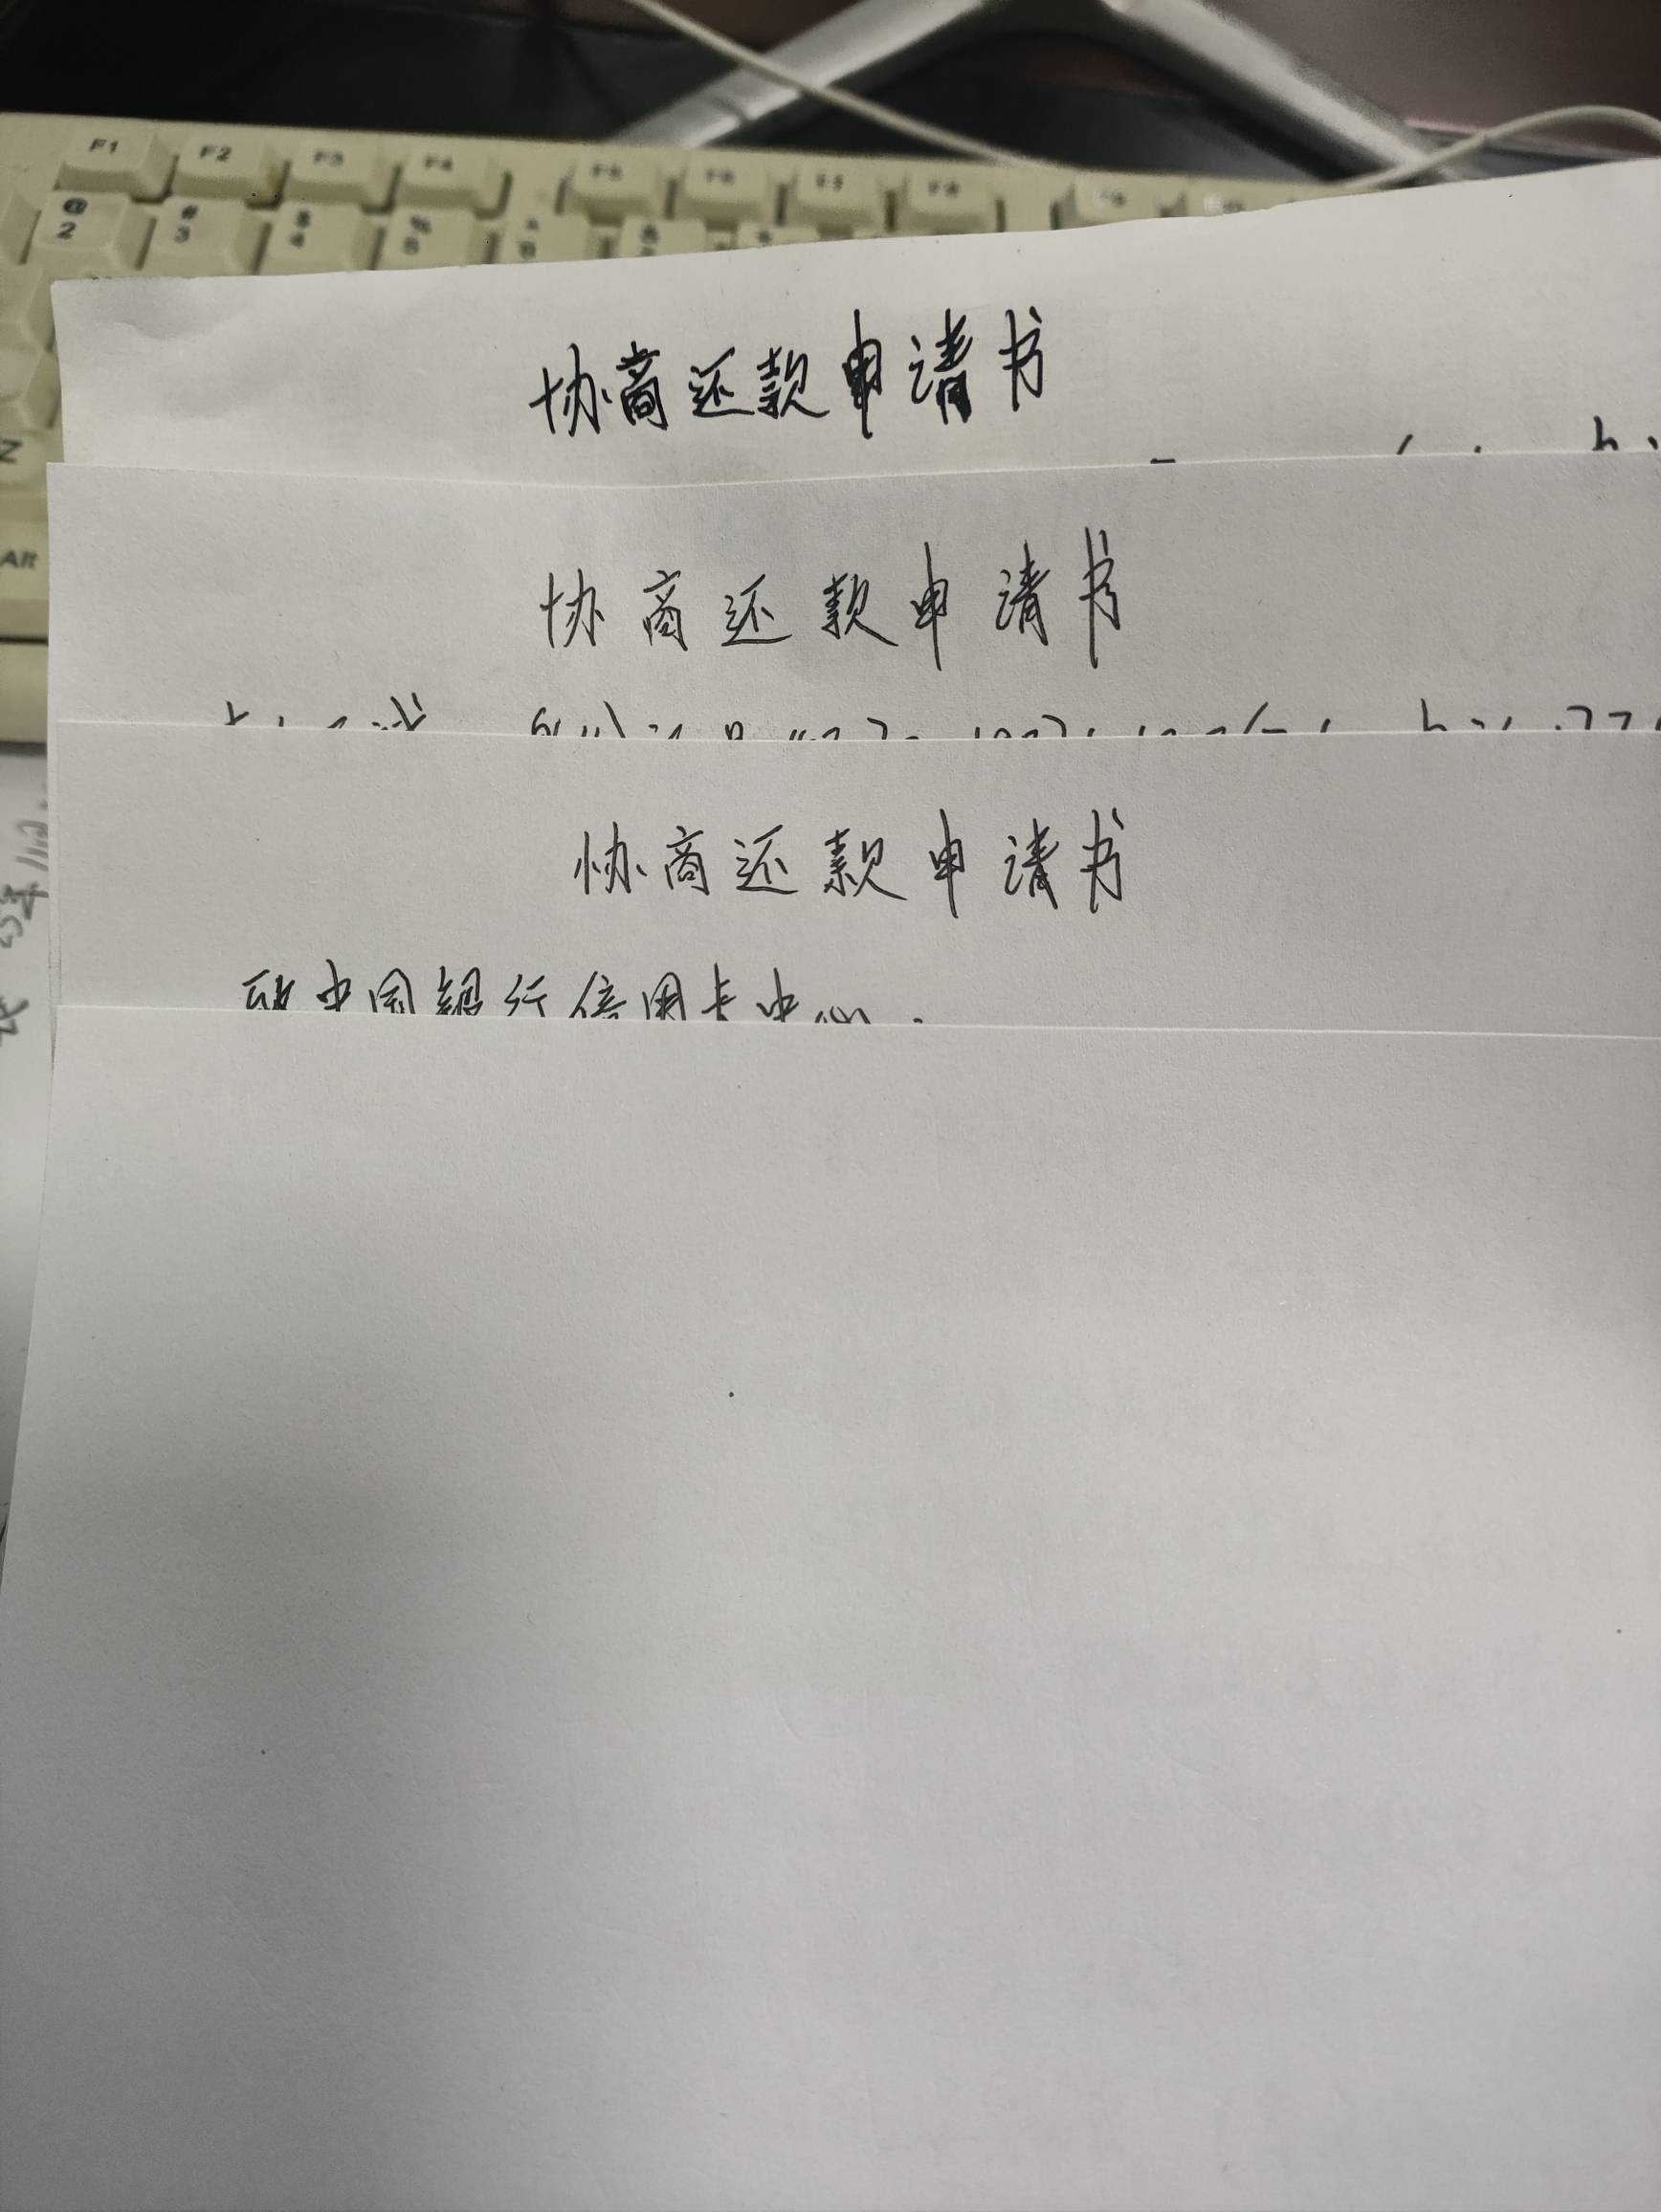 F1 F2 F3 F4 F5 F6 F7 F8 F9
@ 2 # 3 $ 4 % 5 ^ 6
Z
Alt
协商还款申请书
协商还款申请书
协商还款申请书
中国银行信用卡中心: